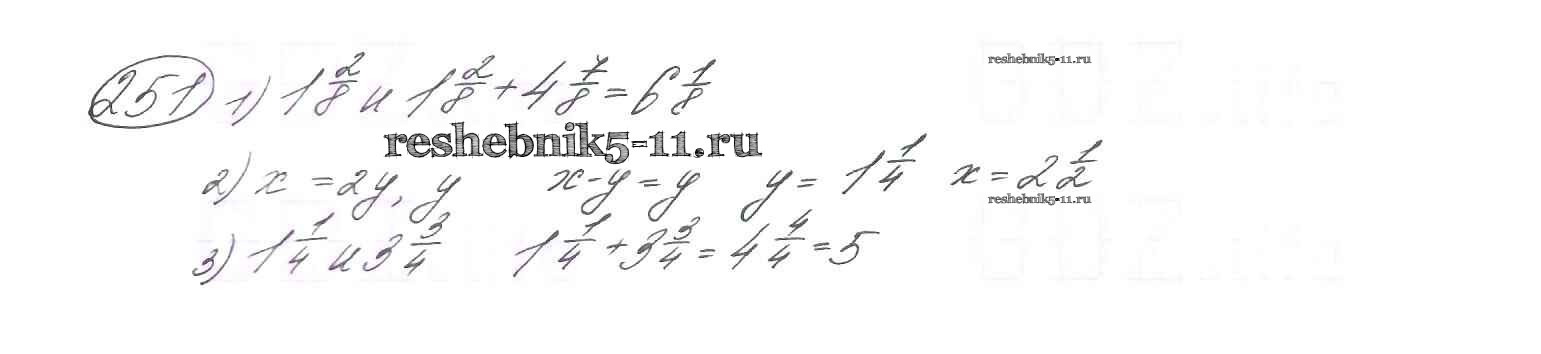 reshebnik5-11.ru
251 1) 1 2/8 и 1 2/8 + 4 7/8 = 6 1/8
reshebnik5-11.ru
2) x = 2y, y x - y = y y = 1 1/4 x = 2 1/2
reshebnik5-11.ru
3) 1 1/4 и 3 3/4 1 1/4 + 3 3/4 = 4 4/4 = 5